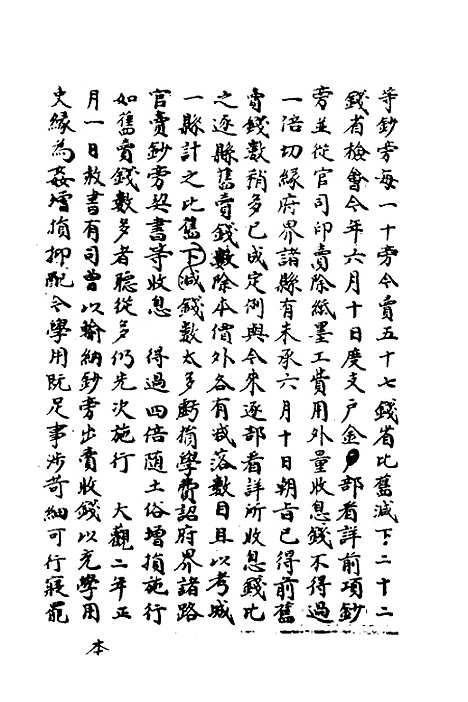 等鈔旁每一十旁今賣五十七錢省比舊減下二十二
錢省檢會今年六月十日度支戶金部看詳前項鈔
旁並從官司印賣除紙墨工費用外量收息錢不得過
一倍切緣府界諸縣有未承六月十日朝旨已得前舊
賣錢數稍多已成定例與今來逐部看詳所收息錢比
之逐縣舊賣錢數除本價外各有減落數目且以考城
一縣計之比舊下減錢數太多虧損學費詔府界諸路
官賣鈔旁契書等收息 得過四倍隨土俗增損施行
如舊賣錢數多者聽從多仍先次施行 大觀二年正
月一日赦書有司曾以輸納鈔旁出賣收錢以充學用
史緣為姦增損抑配今學用既足事涉苛細可行寢罷
本